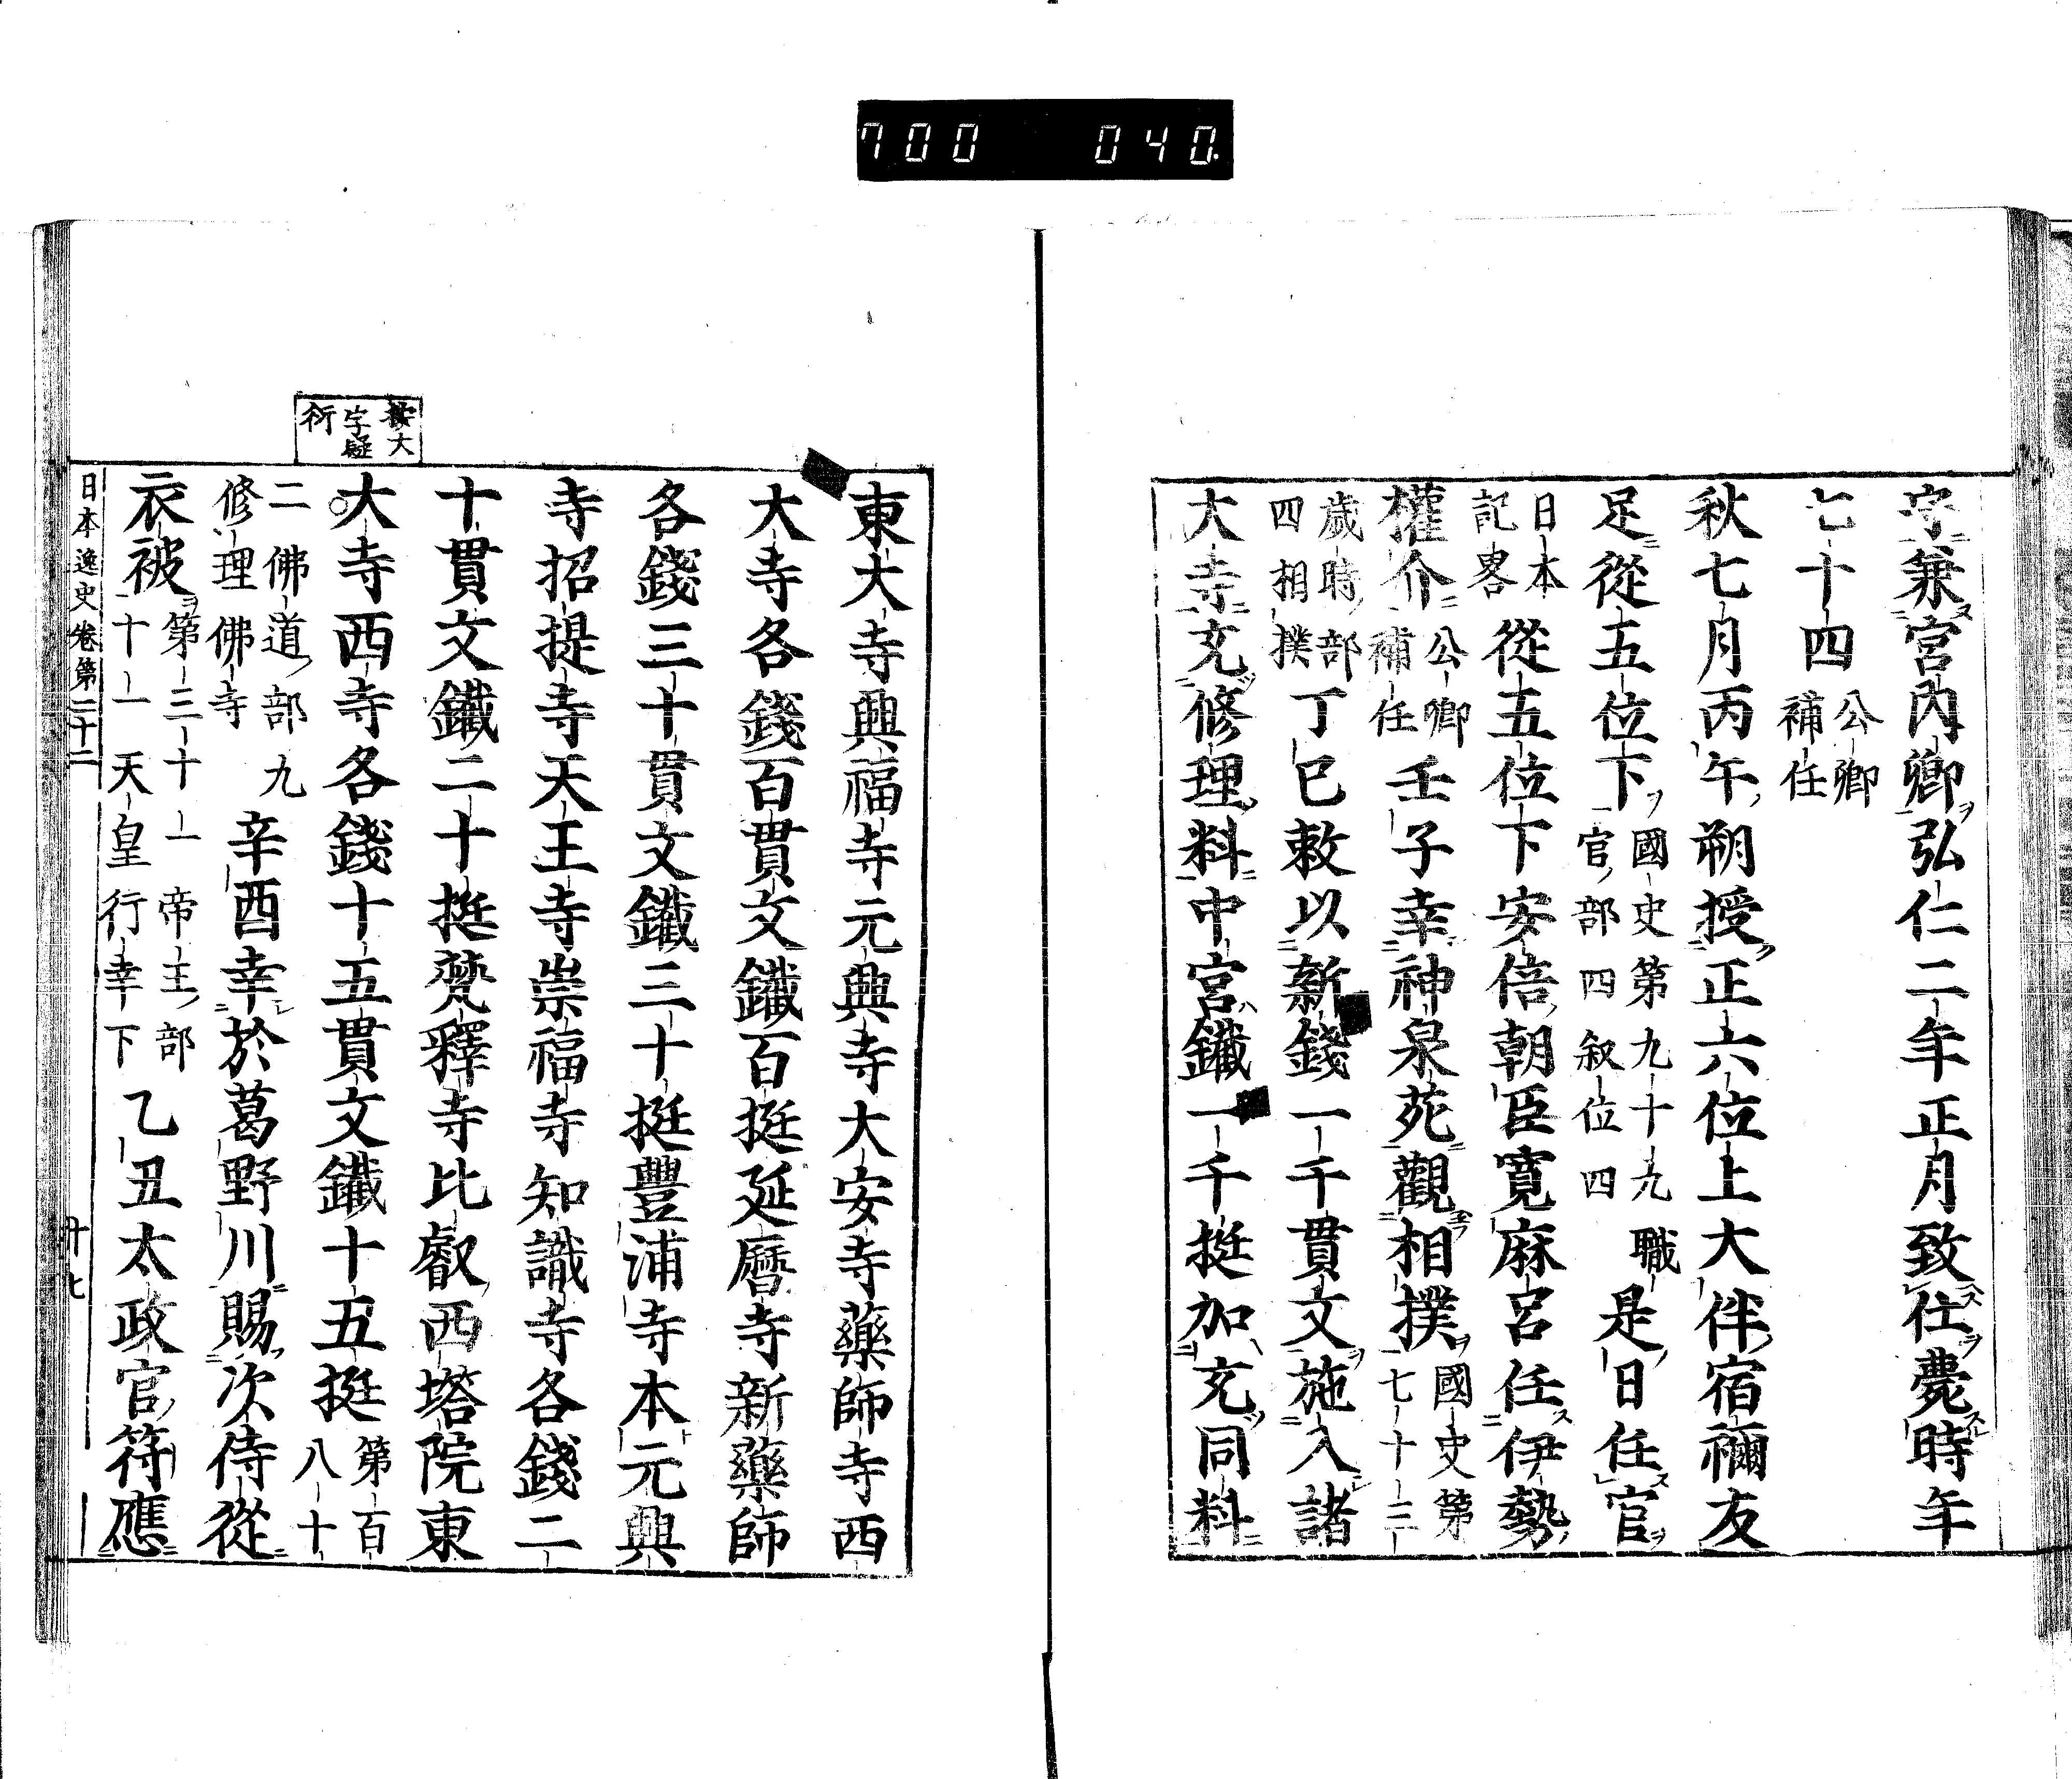 700 040.
守兼宮内卿弘仁二年正月致仕薨時年
七十四公卿補任
秋七月丙午朔授正六位上大伴宿禰友
足從五位下國史第九十九職官部四叙位四是日任官
日本記畧從五位下安倍朝臣寛麻呂任伊勢
權介公卿補任壬子幸神泉苑觀相撲國史第七十三
歲時部四相撲丁巳敕以新錢一千貫文施入諸
大寺充修理料中宮鐵一千挺加充同料
東大寺興福寺元興寺大安寺藥師寺西
大寺各錢百貫文鐵百挺延曆寺新藥師
各錢三十貫文鐵三十挺豐浦寺本元興
寺招提寺天王寺崇福寺知識寺各錢二
十貫文鐵二十挺梵釋寺比叡西塔院東
大寺西寺各錢十五貫文鐵十五挺第百八十
二佛道部九修理佛寺辛酉幸於葛野川賜次侍從
衣被第三十一帝王部十一天皇行幸下乙丑太政官符應
按大
字疑
衍
日本逸史卷第二十二 十七